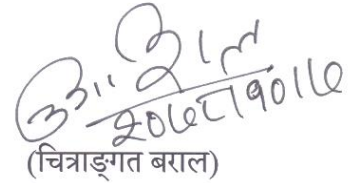 २०७८।१०।१७
(चित्राङ्गत बराल)